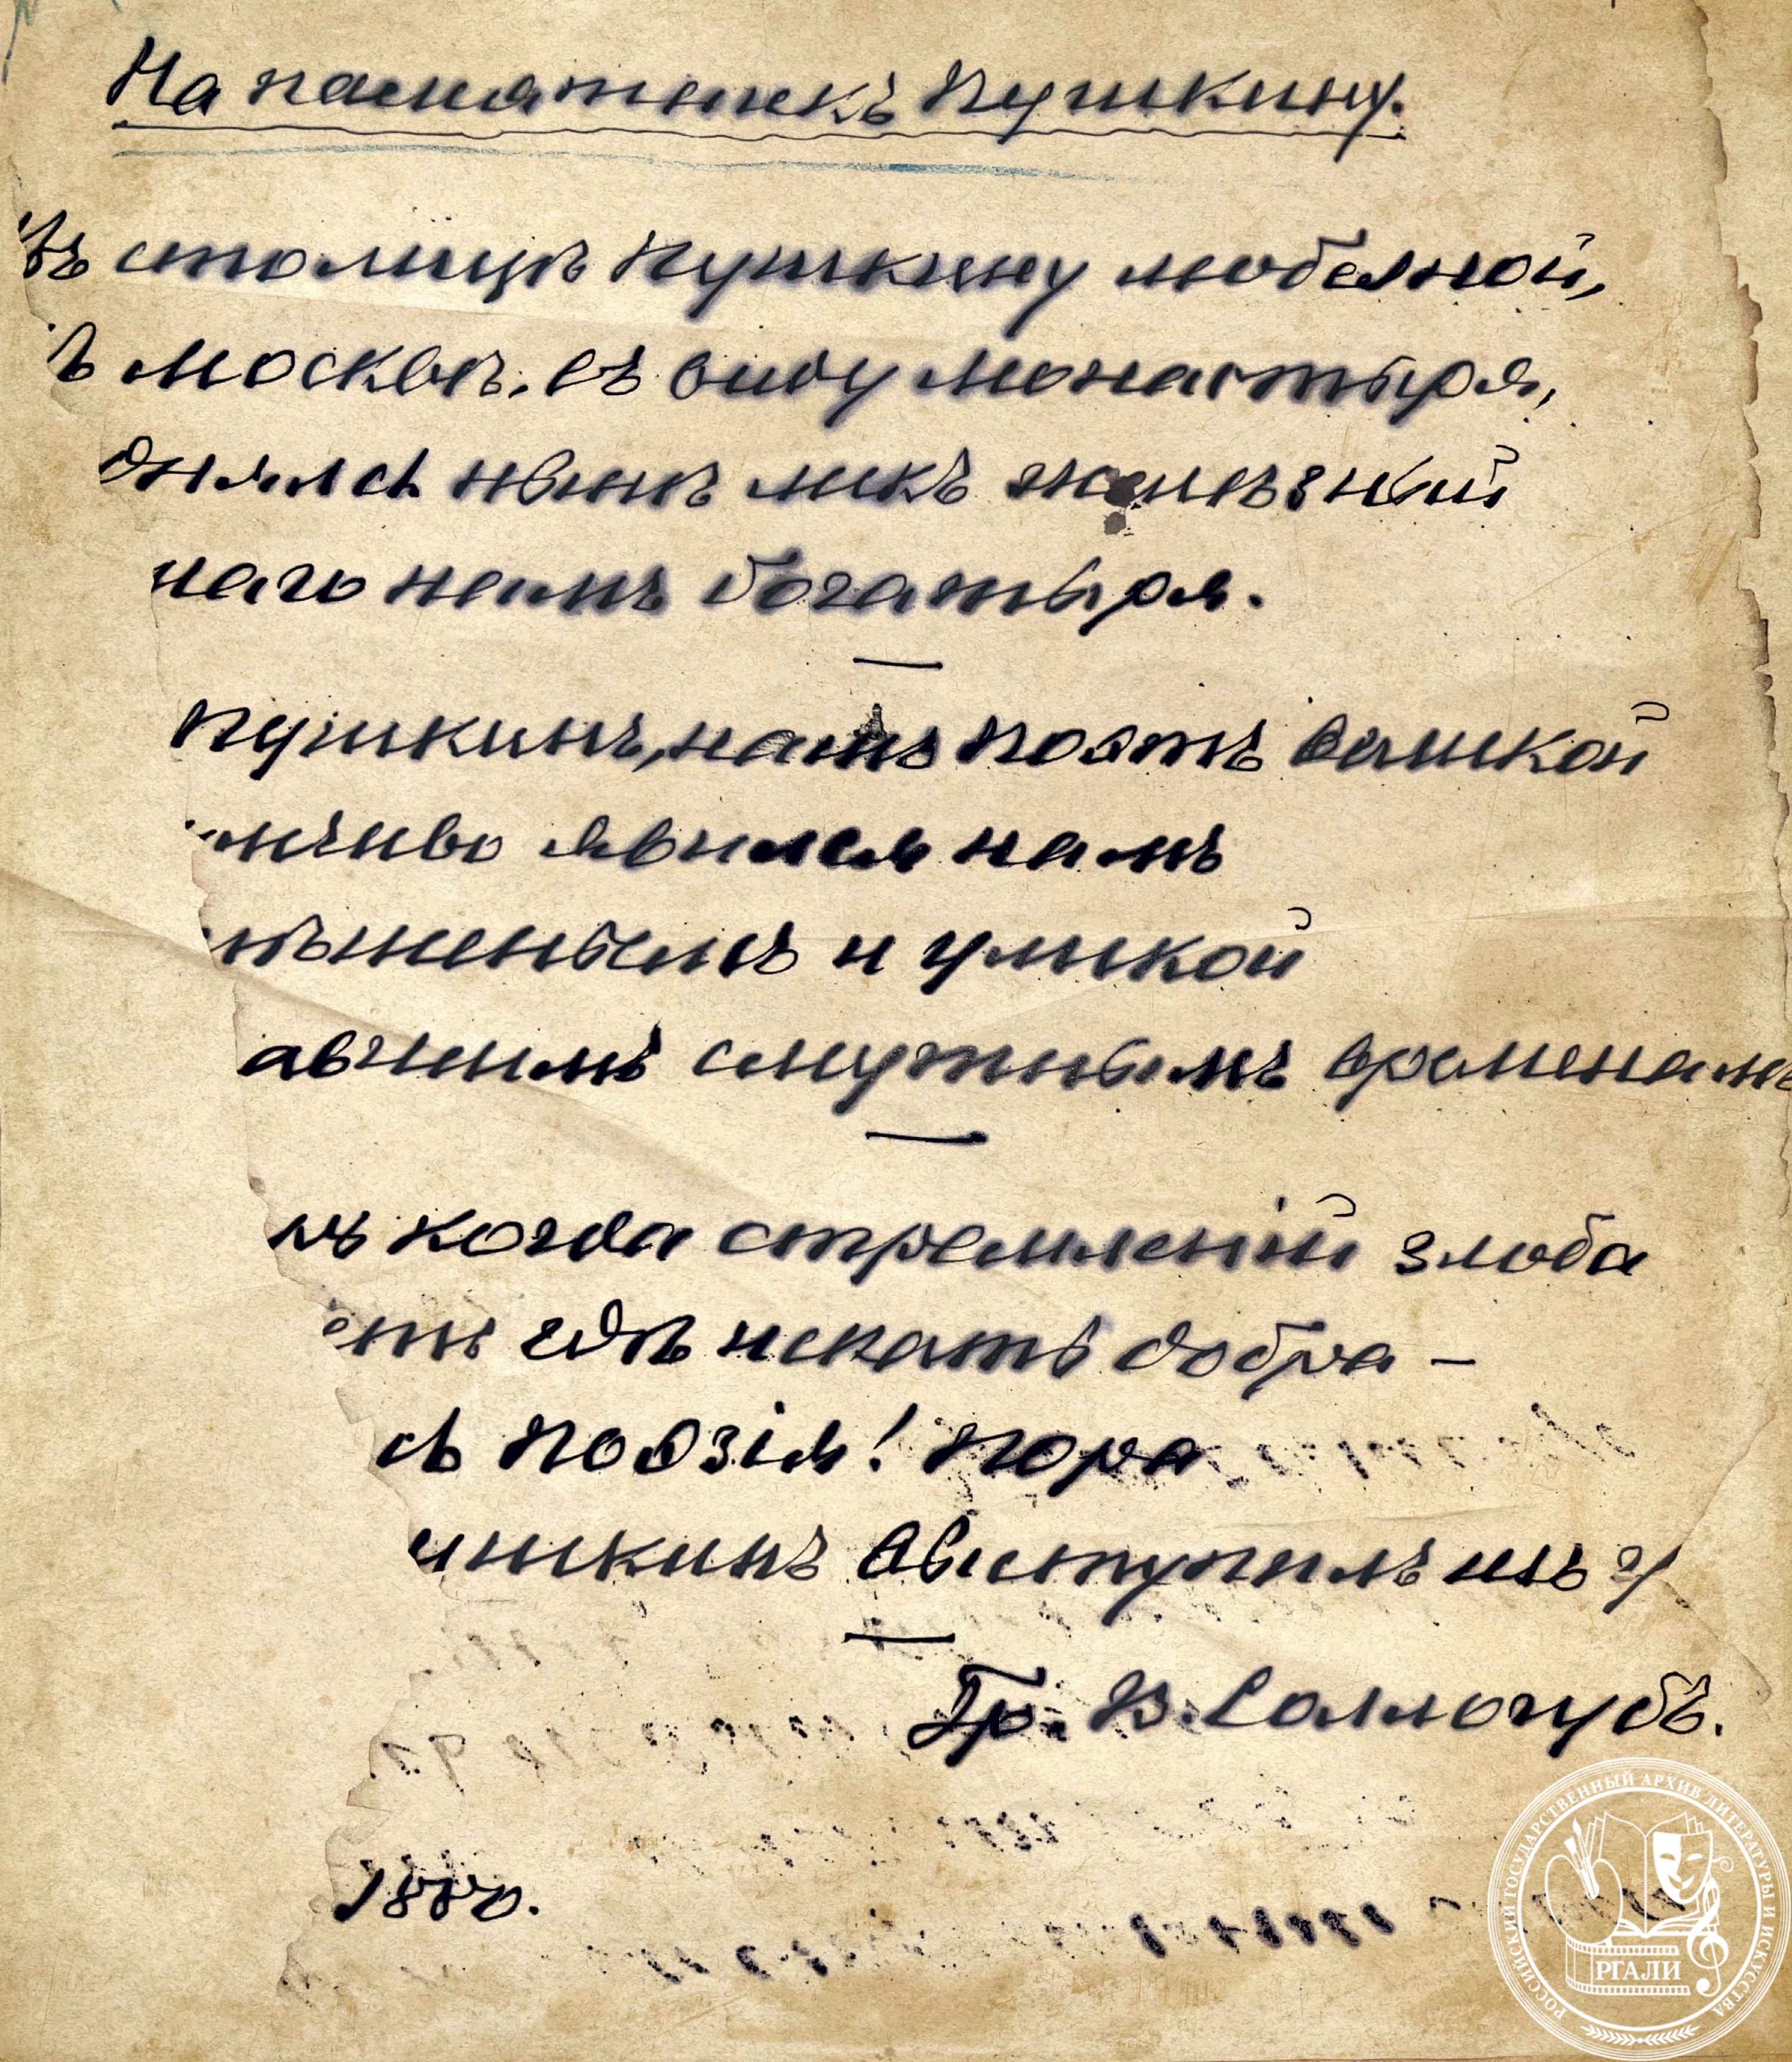 На памятникъ Пушкину.
Въ столицѣ Пушкину любезной,
ъ Москвѣ, въ виду монастыря,
днялся нынѣ ликъ желѣзный
наго намъ богатыря.
Пушкинъ, нашъ поэтъ великой
мчиво явился намъ
иженьемъ и уликой
авшимъ смутнымъ временамъ
нъ когда стремленій злоба
етъ гдѣ искать добра —
сь поэзія! Пора
ушкинъ выступилъ изъ г
Гр. В. Соллогубъ.
1880.
РОССИЙСКИЙ ГОСУДАРСТВЕННЫЙ АРХИВ ЛИТЕРАТУРЫ И ИСКУССТВА
РГАЛИ